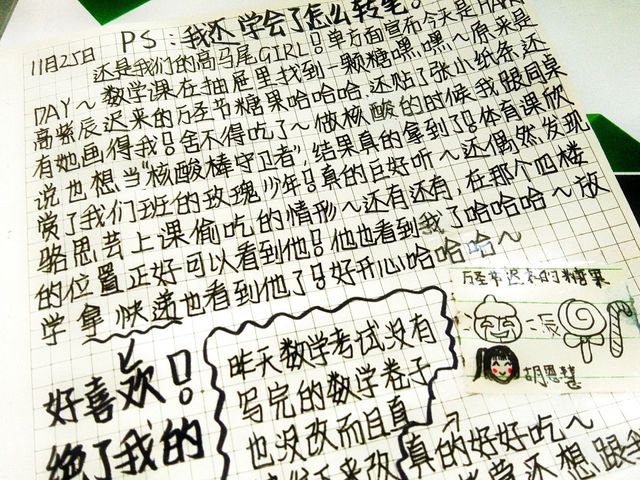 PS:我还学会了怎么转笔!
11月25日
还是我们的高马尾GIRL!单方面宣布今天是HAPPY
DAY～数学课在抽屉里找到一颗糖嘿,嘿～原来是
高紫辰迟来的万圣节糖果哈哈哈,还贴了张小纸条,还
有她画得我!舍不得吃了～做核酸的时候我跟同桌
说也想当“核酸棒守卫者”,结果真的拿到了!体育课欣
赏了我们班的玫瑰少年!真的巨好听～还偶然发现
骆思芸上课偷吃的情形～还有还有,在那个四楼
的位置正好可以看到他!他也看到我了哈哈哈～放
学拿快递也看到他了!好开心哈哈哈～
好喜欢!
绝了我的
昨天数学考试,没有
写完的数学卷子
也没改而且真
下来改
万圣节迟来的糖果
派
胡恩慧
真的好好吃～
还想跟